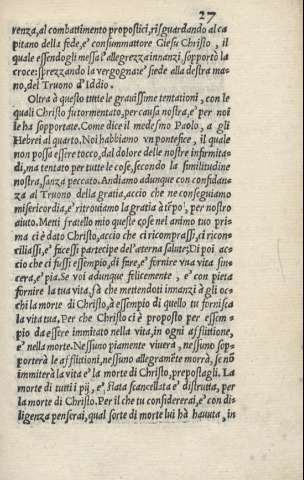 27
renza, al combattimento propostici, risguardando al ca
pitano della fede, e' consummattore Giesu Christo, il
quale essendogli messa l'allegrezza innanzi, sopportò la
croce: sprezzando la vergogna e' siede alla destra ma=
no, del Truono d'Iddio.
Oltra è questo tutte le gravissime tentationi, con le
quali Christo fu tormentato, per causa nostra, e' per noi
le ha sopportate. Come dice il medesmo Paolo, a gli
Hebrei al quarto. Noi habbiamo un pontefice, il quale
non possa essere tocco, dal dolore delle nostre infirmita=
di, ma tentato per tutte le cose, secondo la similitudine
nostra, sanza peccato. Andiamo adunque con confidan=
za al Truono della gratia, accio che ne conseguiamo
misericordia, e' ritroviamo la gratia à tẽpo, per nostro
aiuto. Metti fratello mio queste cose nel animo tuo pri=
ma ci è dato Christo, accio che ci ricomprassi, ci ricon=
ciliassi, e' facessi partecipe del'aeterna salute: Di poi ac=
cio che ci fussi essempio, di fare, e' fornire una vita sin=
cera, e' pia. Se voi adunque felicemente, e' con pieta
fornire la tua vita, fà che mettendoti innanzi à gli oc=
chi la morte di Christo, à essempio di quello tu fornisca
la vita tua, Per che Christo ci è proposto per essem=
pio da essere immitato nella vita, in ogni afflittione,
e' nella morte. Nessuno piamente viverà, nessuno sop=
porterà le afflitioni, nessuno allegramẽte morrà, se nõ
immiterà la vita e' la morte di Christo, prepostagli. La
morte di tutti i pij, e' stata scancellata e' distrutta, per
la morte di Christo. Per il che tu considererai, e' con di=
ligenza penserai, qual sorte di morte lui hà havuta, in